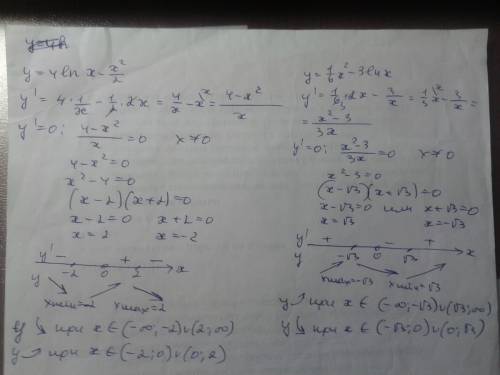 y = 4 ln x - x²/2
y' = 4 · 1/x - 1/2 · 2x = 4/x - x = 4-x² / x
y' = 0; 4-x² / x = 0 x ≠ 0
4-x² = 0
x² - 4 = 0
(x-2)(x+2) = 0
x-2=0 x+2=0
x = 2 x = -2
y' - + -
-2 0 2 x
y
xmin = -2 xmax = 2
y ↘ при x ∈ (-∞; -2) ∪ (2; ∞)
y ↗ при x ∈ (-2; 0) ∪ (0; 2)
y = 1/6 x² - 3 ln x
y' = 1/6 · 2x - 3/x = 1/3 x - 3/x =
= x²-3 / 3x
y' = 0; x²-3 / 3x = 0 x ≠ 0
x² - 3 = 0
(x-√3)(x+√3) = 0
x-√3=0 или x+√3=0
x = √3 x = -√3
y' + - +
-√3 0 √3 x
y
xmax = -√3 xmin = √3
y ↗ при x ∈ (-∞; -√3) ∪ (√3; ∞)
y ↘ при x ∈ (-√3; 0) ∪ (0; √3)